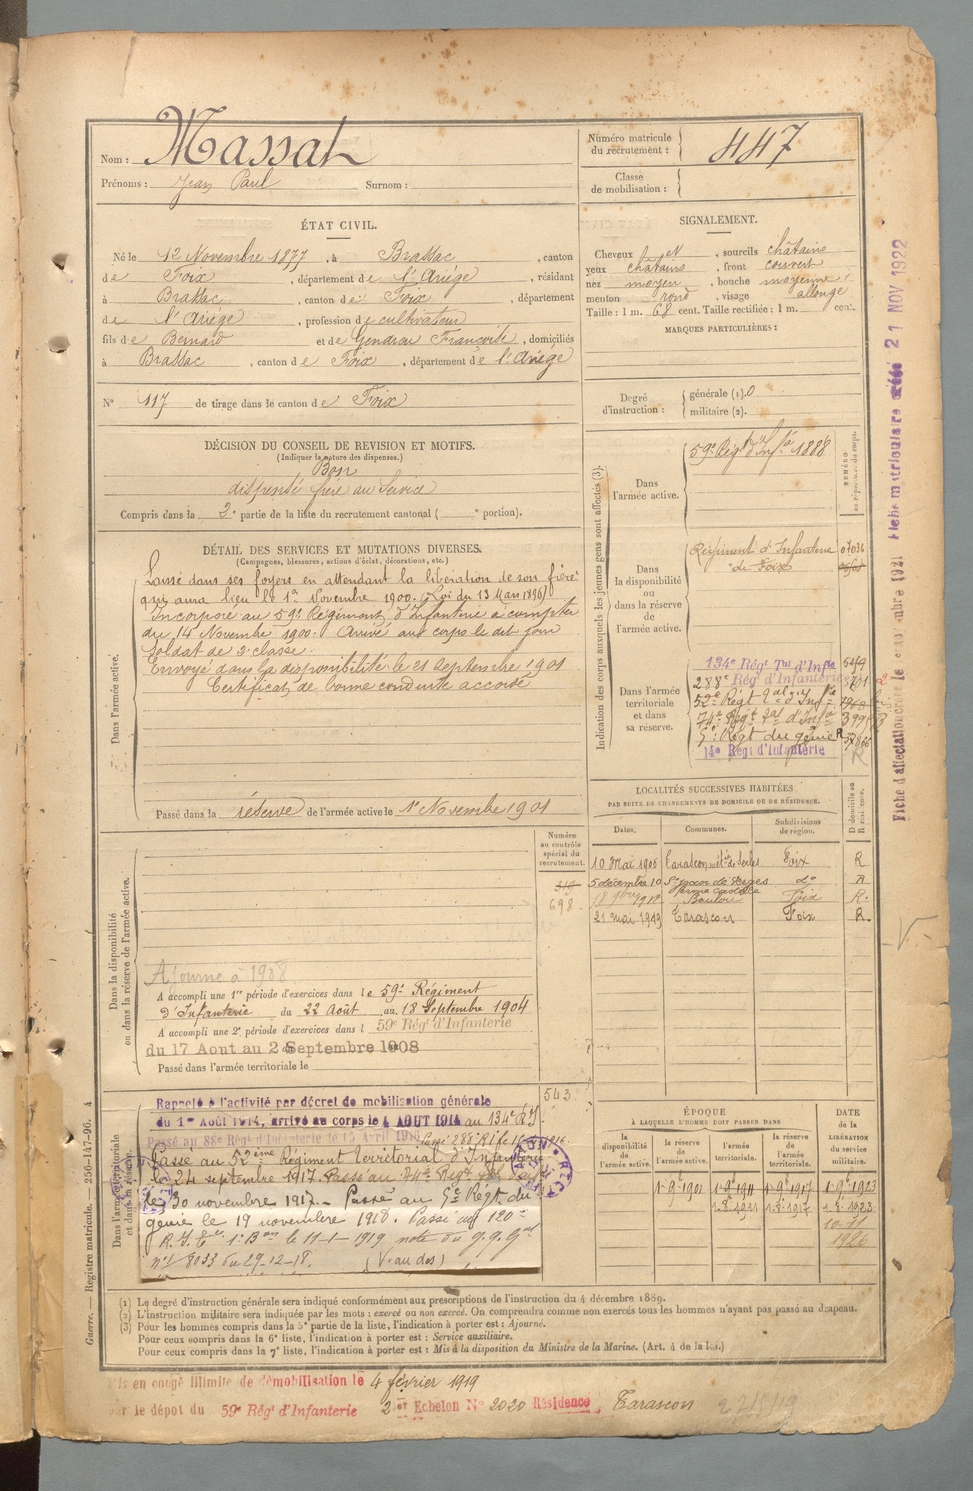 Nom : Massat
Prénoms : Jean Paul Surnom :
Numéro matricule du recrutement : 447
Classe de mobilisation :
ÉTAT CIVIL.
Né le 12 Novembre 1877, à Brassac, canton
de Foix, département de l'Ariège, résidant
à Brassac, canton de Foix, département
de l'Ariège, profession de cultivateur
fils de Bernard et de Françoise, domiciliés
à Brassac, canton de Foix, département de l'Ariège
N° 117 de tirage dans le canton de Foix
SIGNALEMENT.
Cheveux et, sourcils châtains
yeux châtains, front couvert
nez moyen, bouche moyenne
menton rond, visage allongé
Taille : 1 m. 68 cent. Taille rectifiée : 1 m. cent.
MARQUES PARTICULIÈRES :
Degré d'instruction : générale (1). 0
militaire (2).
DÉCISION DU CONSEIL DE REVISION ET MOTIFS.
(Indiquer la nature des dispenses.)
Bon
dispensé frère au Service
Compris dans la 2e partie de la liste du recrutement cantonal ( e portion).
DÉTAIL DES SERVICES ET MUTATIONS DIVERSES.
(Campagnes, blessures, actions d'éclat, décorations, etc.)
Dans l'armée active.
Laissé dans ses foyers en attendant la libération de son frère
qui aura lieu le 1er Novembre 1900. (Loi du 13 Mars 1896)
Incorporé au 59e Régiment d'Infanterie à compter
du 14 Novembre 1900. Arrivé au corps le dit jour
Soldat de 2e classe.
Envoyé dans la disponibilité le 21 Septembre 1901
Certificat de bonne conduite accordé
Passé dans la réserve de l'armée active le 1er Novembre 1901
Indication des corps auxquels les jeunes gens sont affectés (3).
Dans l'armée active.
59e Régt d'Infie 1888
NUMÉRO au répertoire du corps.
Dans la disponibilité ou dans la réserve de l'armée active.
Régiment d'Infanterie
de Foix
07036
Dans l'armée territoriale et dans sa réserve.
134e Régt Tal d'Infie
288e Régt d'Infanterie
52e Régt Tal d'Infie
74e Régt Tal d'Infie
5e Régt du génie R
14e Régt d'Infanterie
LOCALITÉS SUCCESSIVES HABITÉES
PAR SUITE DE CHANGEMENTS DE DOMICILE OU DE RÉSIDENCE.
Dates. Communes. Subdivisions de région. D domicile ou R résidence.
10 Mai 1906 Tarascon Foix R
5 décembre 10 St Jean de Verges do R
Foix R.
21 mai 1919 Tarascon Foix R.
Numéro au contrôle spécial du recrutement.
698
Dans la disponibilité ou dans la réserve de l'armée active.
Ajourné à 1908
A accompli une 1re période d'exercices dans le 59e Régiment
d'Infanterie du 22 Août au 18 Septembre 1904
A accompli une 2e période d'exercices dans l 59e Régt d'Infanterie
du 17 Aout au 2 Septembre 1908
Passé dans l'armée territoriale le
543
Dans l'armée territoriale et dans sa réserve.
Rappelé à l'activité par décret de mobilisation générale
du 1er Août 1914, arrivé au corps le 4 AOUT 1914 au 134e R.I.
Passé au 88e Régt d'Infanterie le 15 Avril 1916
Passé au 52ème Régiment Territorial d'Infanterie
le 24 septembre 1917. Passé au 74e Regt Tal d'Inf
le 30 novembre 1917. Passé au 5e Régt du
génie le 19 novembre 1918. Passé au 120e
R.I. le 11-1-1919 note du G.Q.G
n° 8033 du 29-12-18. (V. au dos)
ÉPOQUE
À LAQUELLE L'HOMME DOIT PASSER DANS
la disponibilité de l'armée active. la réserve de l'armée active. l'armée territoriale. la réserve de l'armée territoriale. DATE DE LA LIBÉRATION DU SERVICE militaire.
1-9e 1901 1-9e 1911 1-9e 1917 1-9e 1923
1-8e 1911 1-8e 1917 1-8e 1923
1926
(1) Le degré d'instruction générale sera indiqué conformément aux prescriptions de l'instruction du 4 décembre 1889.
(2) L'instruction militaire sera indiquée par les mots : exercé ou non exercé. On comprendra comme non exercés tous les hommes n'ayant pas passé au drapeau.
(3) Pour les hommes compris dans la 5e partie de la liste, l'indication à porter est : Ajourné.
Pour ceux compris dans la 6e liste, l'indication à porter est : Service auxiliaire.
Pour ceux compris dans la 7e liste, l'indication à porter est : Mis à la disposition du Ministre de la Marine. (Art. 4 de la loi.)
Mis en congé illimité de démobilisation le 4 février 1919
par le dépôt du 59e Régt d'Infanterie 2e Echelon N° 2020 Résidence Tarascon
Guerre. — Registre matricule. — 256-147-96. 4
21 NOV 1922